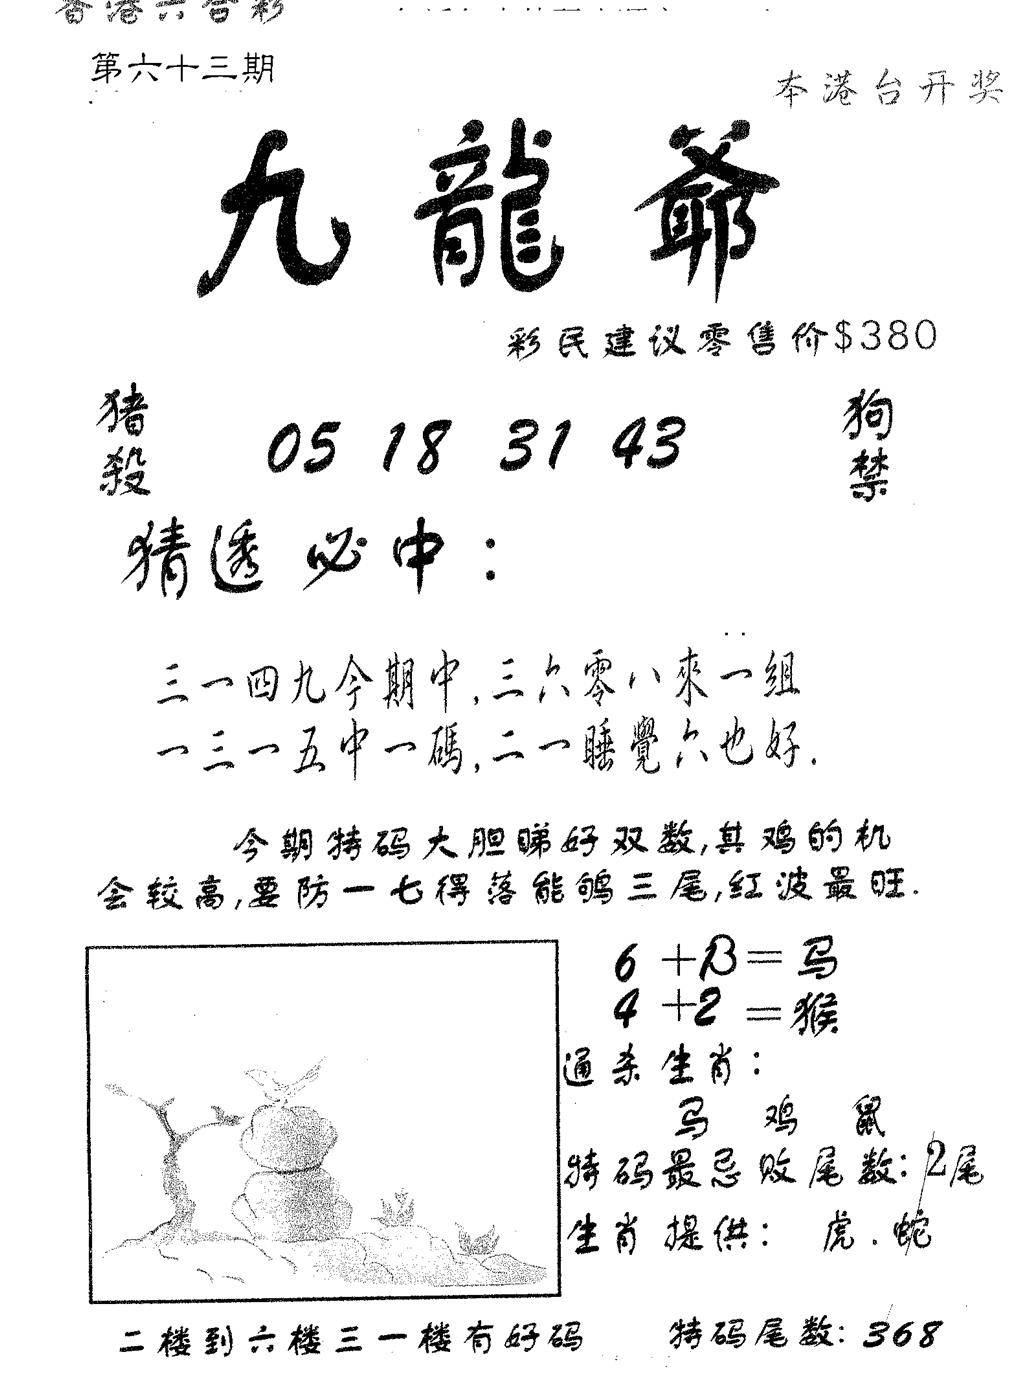 香港六合彩
第六十三期
本港台开奖
九龍爺
彩民建议零售价$380
猪殺
05 18 31 43
狗禁
猜透必中：
三一四九今期中,三六零八來一組
一三一五中一碼,二一睡覺六也好.
今期特码大胆睇好双数,其鸡的机
会较高,要防一七得落能鸲三尾,红波最旺.
6+13=马
4+2=猴
通杀生肖：
马 鸡 鼠
特码最忌败尾数：2尾
生肖提供： 虎.蛇
二楼到六楼三一楼有好码
特码尾数：368